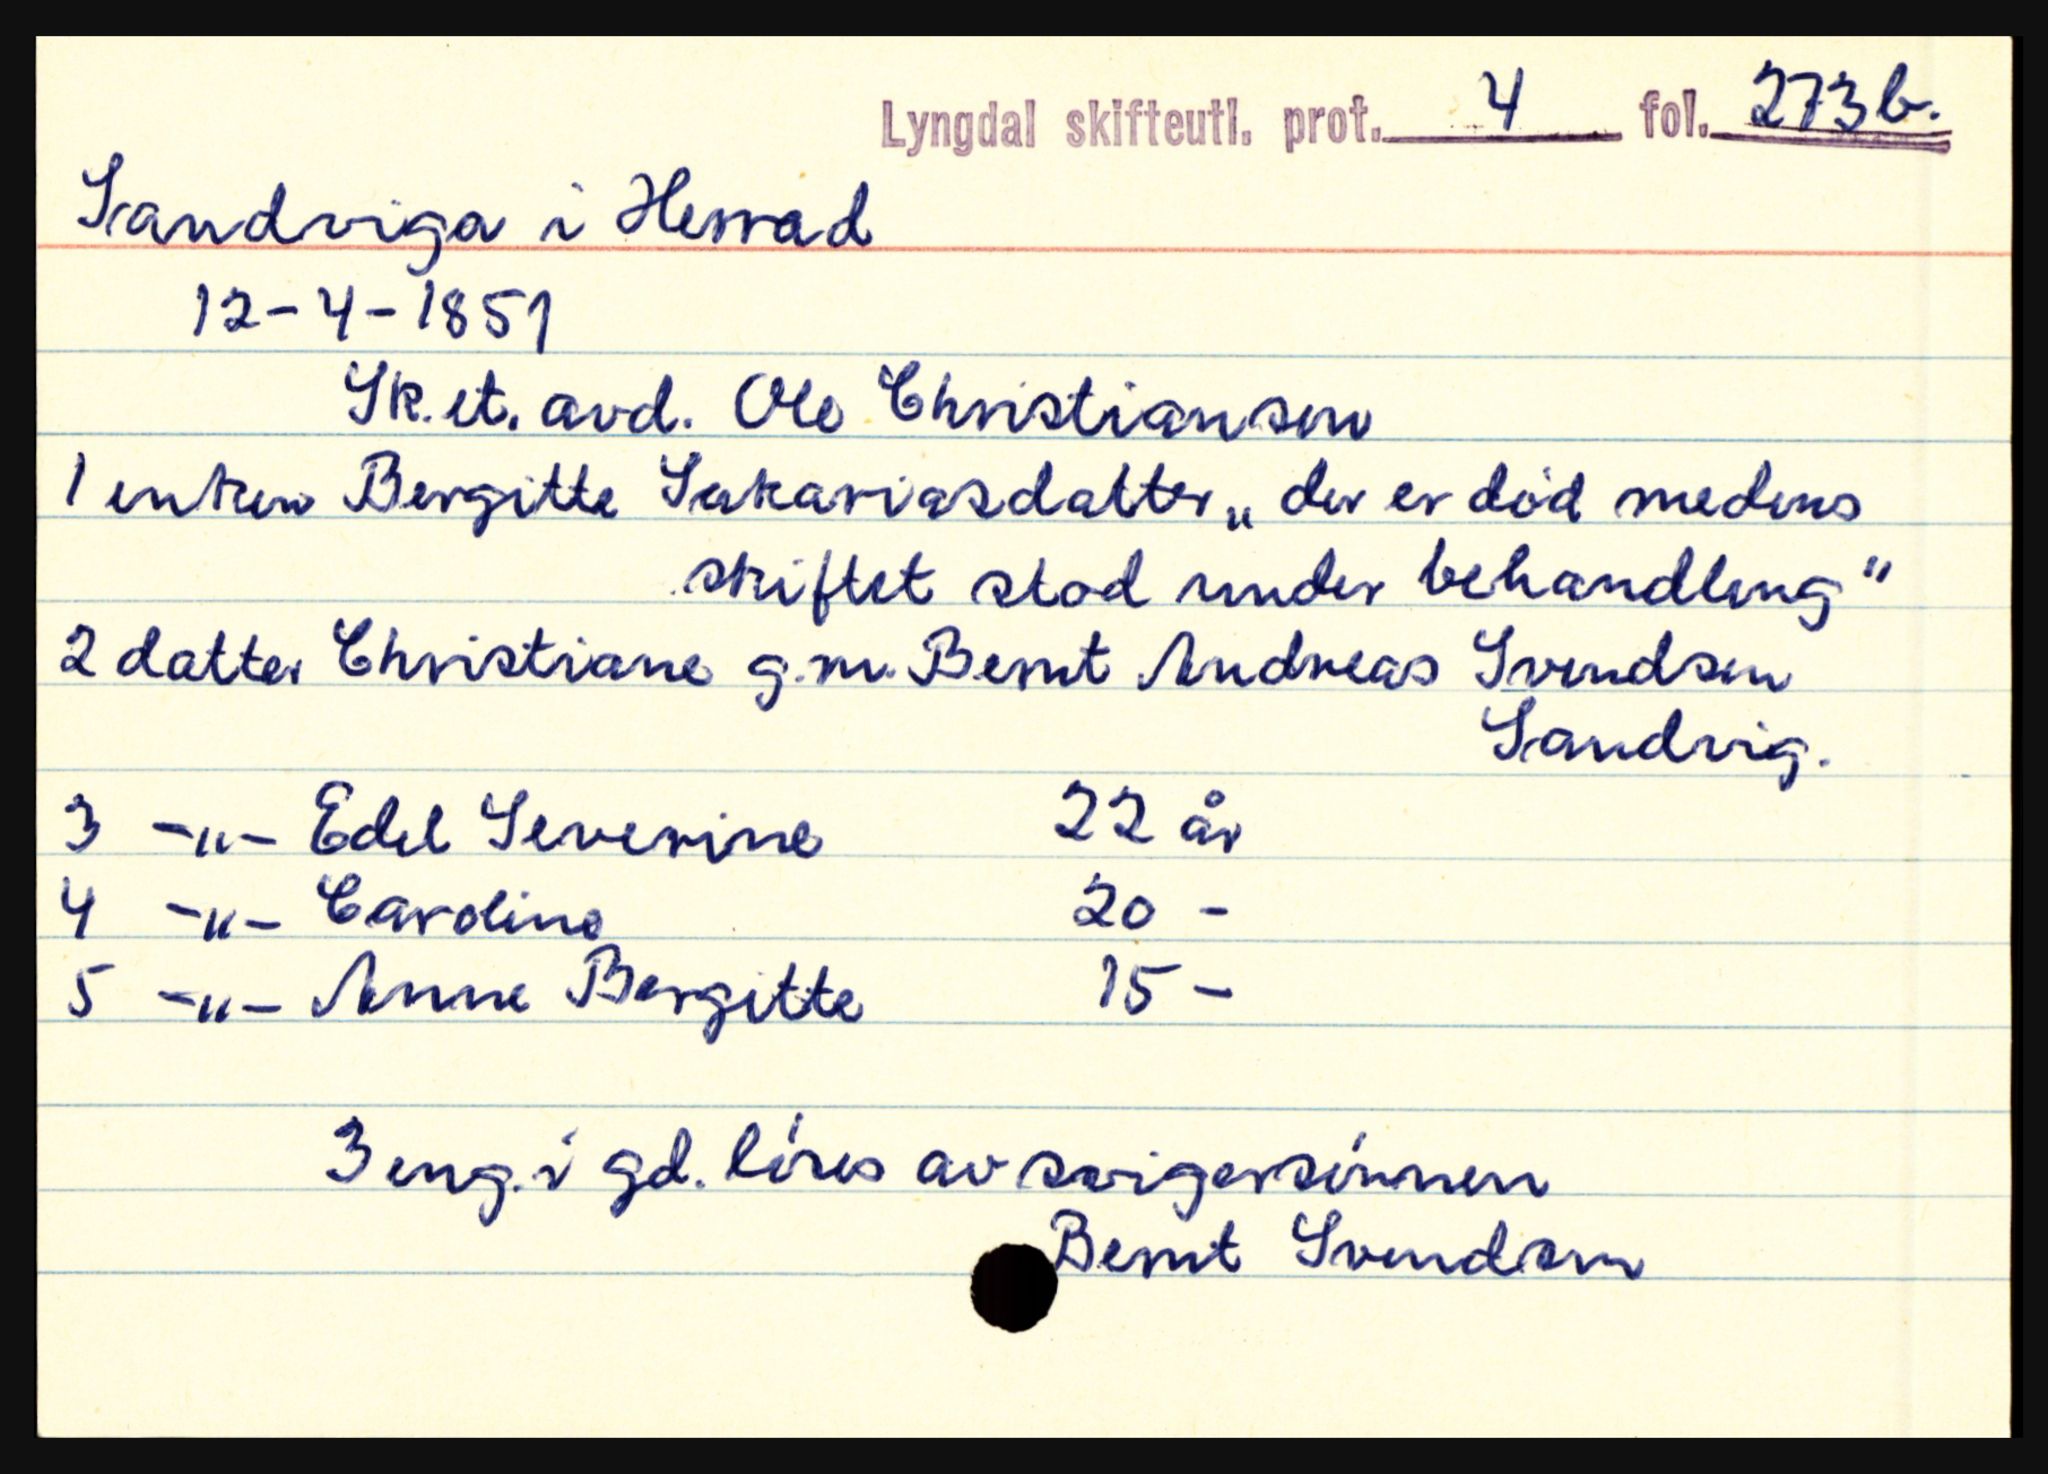 Lyngdal skifteutl. prot. 4 fol. 273b.
Sandviga i Herrad
12-4-1851
Sk. et. avd. Ole Christiansen
1 enken Bergitte Sakariasdatter „ der er død medens
skiftet stod under behandling"
2 datter Christiane g.m. Bernt Andreas Svendsen
Sandvig.
3 -"- Edel Severine 22 år
4 -"- Caroline 20 -
5 -"- Anne Bergitte 15 -
3 eng. i gd. løses av svigersønnen
Bernt Svendsen